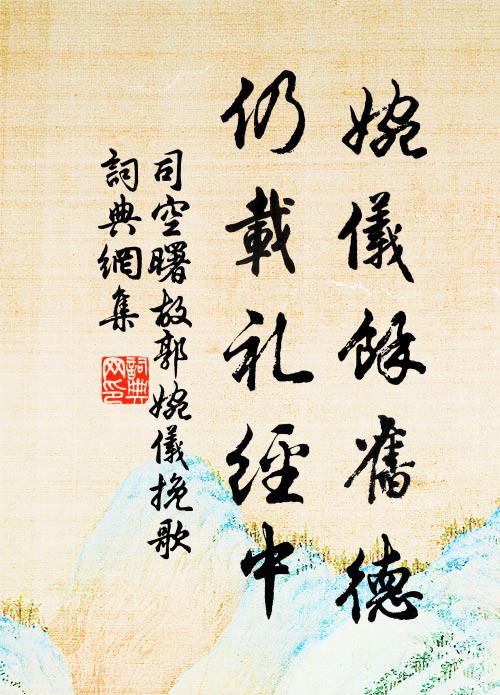 婉儀餘舊德
仍載礼經中
司空曙故郭婉儀挽歌
詞典網集
詞典网印